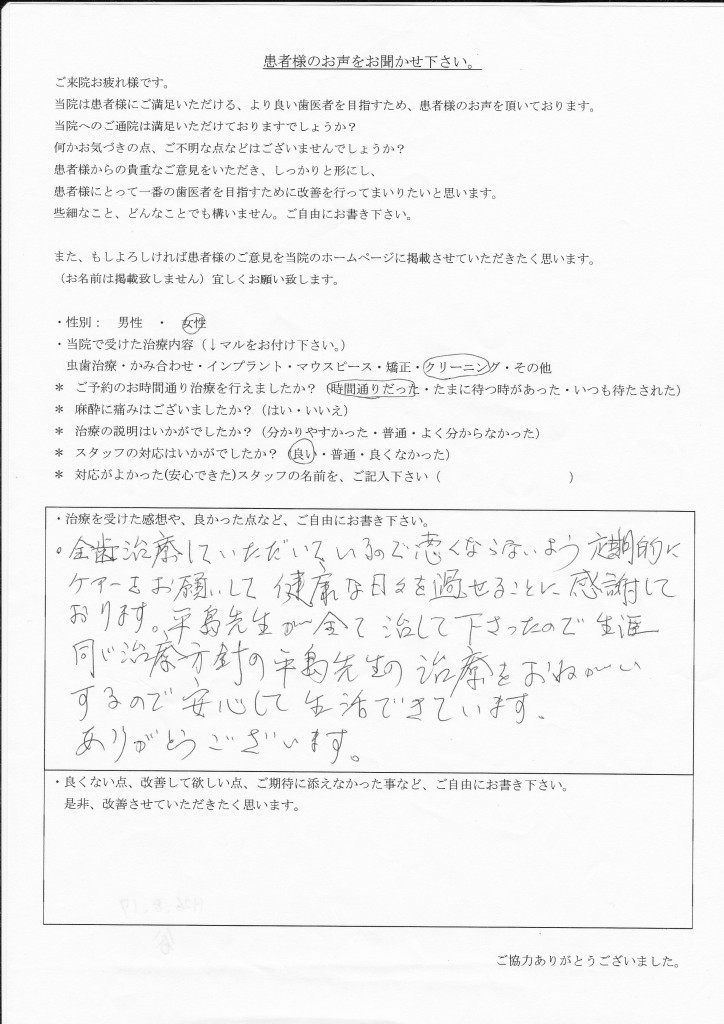 患者様のお声をお聞かせ下さい。
ご来院お疲れ様です。
当院は患者様にご満足いただける、より良い歯医者を目指すため、患者様のお声を頂いております。
当院へのご通院は満足いただけておりますでしょうか？
何かお気づきの点、ご不明な点などはございませんでしょうか？
患者様からの貴重なご意見をいただき、しっかりと形にし、
患者様にとって一番の歯医者を目指すために改善を行ってまいりたいと思います。
些細なこと、どんなことでも構いません。ご自由にお書き下さい。
また、もしよろしければ患者様のご意見を当院のホームページに掲載させていただきたく思います。
（お名前は掲載致しません）宜しくお願い致します。
・性別： 男性 ・ 女性
・当院で受けた治療内容（↓マルをお付け下さい。）
虫歯治療・かみ合わせ・インプラント・マウスピース・矯正・クリーニング・その他
＊ ご予約のお時間通り治療を行えましたか？（時間通りだった・たまに待つ時があった・いつも待たされた）
＊ 麻酔に痛みはございましたか？（はい・いいえ）
＊ 治療の説明はいかがでしたか？（分かりやすかった・普通・よく分からなかった）
＊ スタッフの対応はいかがでしたか？（良い・普通・良くなかった）
＊ 対応がよかった(安心できた)スタッフの名前を、ご記入下さい（ ）
・治療を受けた感想や、良かった点など、ご自由にお書き下さい。
・全歯治療していただいているので悪くならないよう 定期的に
ケアーをお願いして 健康な日々を過せることに感謝して
おります。平島先生が全て治して下さったので生涯
同じ治療方針の平島先生の治療をおねがい
するので安心して生活できています、
ありがとうございます。
・良くない点、改善して欲しい点、ご期待に添えなかった事など、ご自由にお書き下さい。
是非、改善させていただきたく思います。
ご協力ありがとうございました。